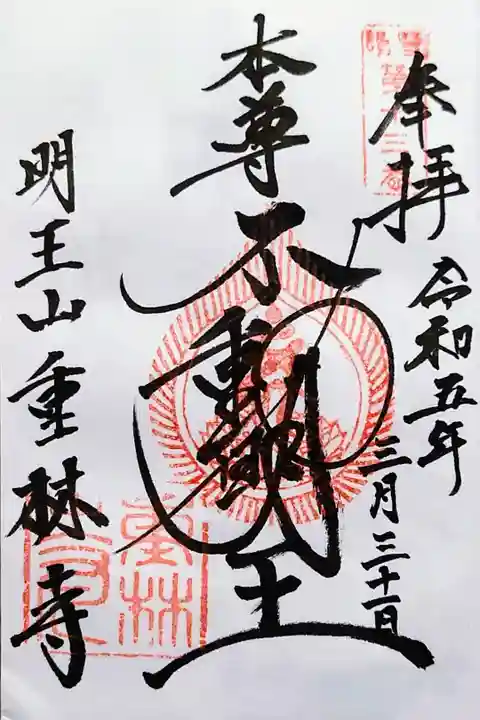 奉拝
令和五年
三月三十一日
本尊
不動明王
明王山重林寺
重林
寺